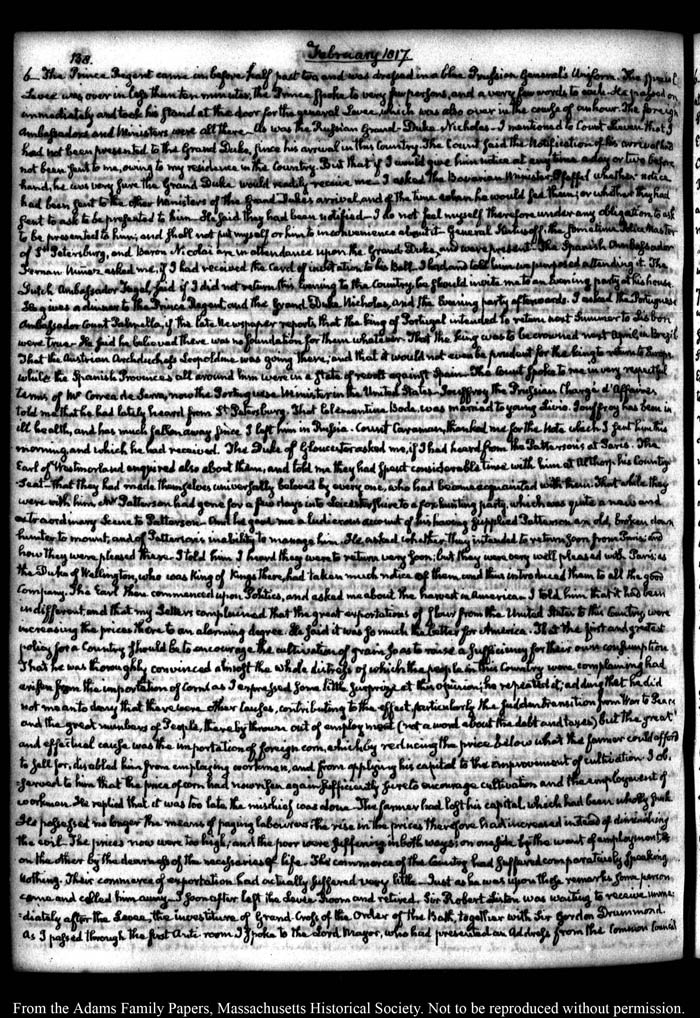 138.
February 1817
6— The Prince Regent came in before half past two and was dressed in a blue Prussian General's Uniform. The special
Levee was over in less than ten minutes, the Prince spoke to very few persons, and a very few words to each. He passed on
immediately and took his stand at the door for the general Levee, which was also over in the course of an hour. The foreign
Ambassadors and Ministers were all there. As was the Russian Grand-Duke Nicholas. I mentioned to Count Lieven that I
had not been presented to the Grand Duke, since his arrival in this Country. The Count said the Notification of his arrival had
not been sent to me, owing to my residence in the Country. But that if I would give him notice at any time a day or two before
hand, he was very sure the Grand Duke would readily receive me. I asked the Bavarian Minister, Pfeffel whether notice
had been sent to the other Ministers of the Grand Duke's arrival, and of the time when he would see them; or whether they had
sent to ask to be presented to him. He said they had been notified. I do not feel myself therefore under any obligation to ask
to be presented to him; and shall not put myself or him to inconvenience about it. General the sometime Police Master
of St. Petersburg, and Baron Nicolai are in attendance upon the Grand Duke, and were present. The Spanish Ambassador
Fernan Nunez asked me, if I had received the Card of invitation to his Ball. I had and told him we purposed attending it. The
Dutch Ambassador Fagel, said if I did not return this evening to the Country, he should invite me to an Evening party at his house.
He gave a dinner to the Prince Regent and the Grand Duke Nicholas, and the Evening party afterwards. I asked the Portuguese
Ambassador Count Palmella, if the late Newspaper reports that the king of Portugal intended to return next Summer to Lisbon
were true. He said he believed there was no foundation for them whatever. That the king was to be crowned next April, in Brazil
That the Austrian Archduchess Leopoldine was going there; and that it would not even be prudent for the king to return to Europe
while the Spanish Provinces all around him were in a State of revolt against Spain. The Count spoke to me in very respectful
terms of Mr Correa de Serra, now the Portuguese Minister in the United States. Jouffroy the Prussian Chargé d'Affaires
told me that he had lately heard from St. Petersburg. That Clementine Bode, was married to young Livio. Jouffroy has been in
ill health, and has much fallen away since I left him in Russia. Count Caraman, thanked me for the Note which I sent him this
morning and which he had received. The Duke of Gloucester asked me, if I had heard from the Pattersons at Paris. The
Earl of Westmorland enquired also about them, and told me they had spent considerable time with him at Althorp his Country
Seat. that they had made themselves universally beloved by every one, who had become acquainted with them. That while they
were with him, Mr Patterson had gone for a few days into Leicestershire to a fox hunting party, which was quite a new and
extraordinary Scene to Patterson. And he gave me a ludicrous account of his having supplied Patterson an old, broken down
hunter to mount, and of Patterson's inability to manage him. He asked whether they intended to return soon from Paris; and
how they were pleased there. I told him I heard they were to return very soon; but they were very well pleased with Paris; as
the Duke of Wellington, who was King of Kings there, had taken much notice of them, and thus introduced them to all the good
Company. The Earl then commenced upon Politics, and asked me about the harvest in America. I told him that it had been
indifferent, and that my Letters complained that the great exportations of flour from the United States to this Country, were
increasing the prices there to an alarming degree. He said it was so much the better for America. That the first and greatest
policy for a Country should be to encourage the cultivation of grain so as to raise a sufficiency for their own consumption
That he was thoroughly convinced almost the whole distress of which the people in this Country were complaining had
arisen from the importation of Corn. as I expressed some little surprize at this opinion; he repeated it; adding that he did
not mean to deny that there were other causes, contributing to the effect, particularly the sudden transition from War to Peace
and the great numbers of People, thereby thrown out of employment (not a word about the debt and taxes) but the great
and effectual cause was the importation of foreign corn, which by reducing the price below what the farmer could afford
to sell for, disabled him from employing workmen, and from applying his capital to the improvement of cultivation. I ob-
-served to him that the price of corn had now risen again sufficiently here to encourage cultivation and the employment of
workmen. He replied that it was too late, the mischief was done. The farmer had lost his capital, which had been wholly sunk
He possessed no longer the means of paying labourers. The rise in the prices therefore had increased instead of diminishing
the evil. The prices now were too high, and the poor were suffering in both ways; on one side by the want of employment, &
on the other by the dearness of the necessaries of life. The commerce of the Country had suffered comparatively speaking
Nothing. Their commerce of exportation had actually suffered very little. Just as he was upon those remarks some person
came and called him away. I soon after left the Levee Room and retired. Sir Robert Liston was waiting to receive imme-
-diately after the Levee, the investiture of Grand-Cross of the Order of the Bath, together with Sir Gordon Drummond.
As I passed through the first Anti room I spoke to the Lord Mayor, who had presented an Address from the Common Council
From the Adams Family Papers, Massachusetts Historical Society. Not to be reproduced without permission.